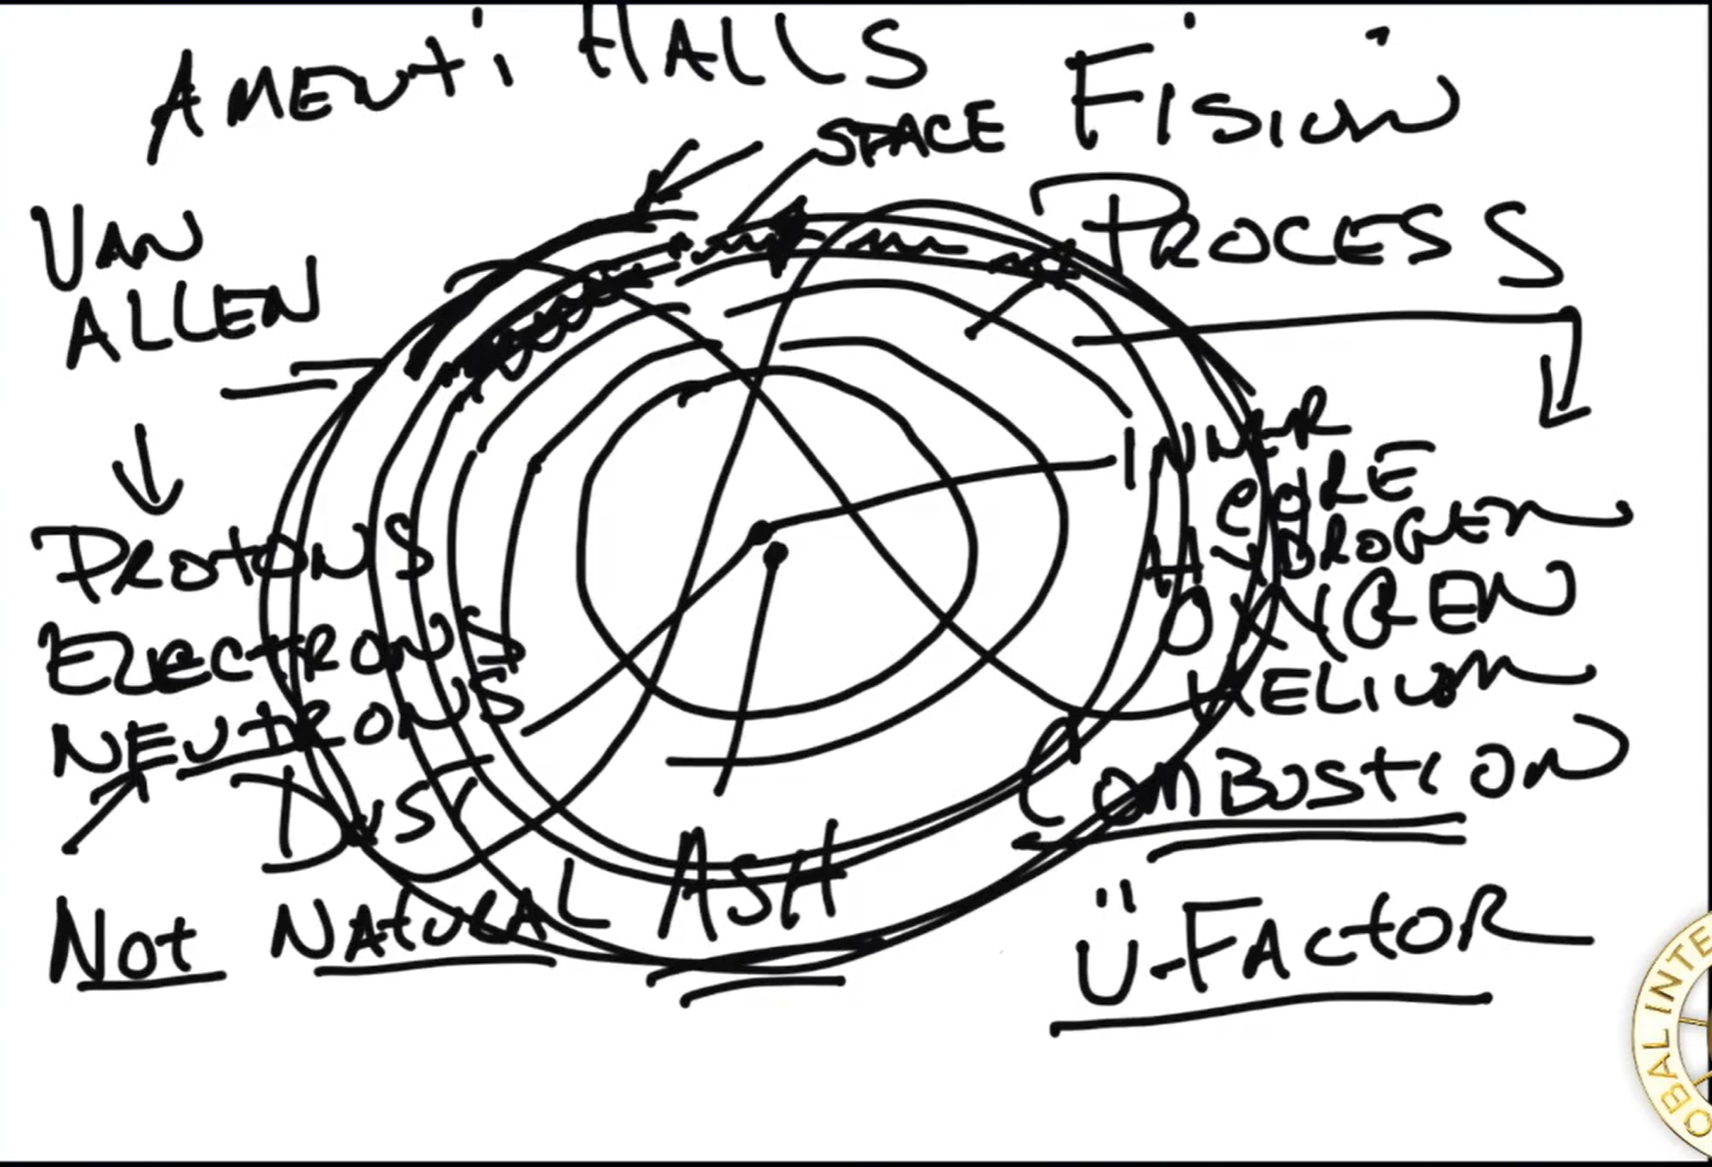 AMENTI HALLS
SPACE
FISION
PROCESS
VAN
ALLEN
PROTONS
ELECTRONS
NEUTRONS
DUST
NOT NATURAL ASH
INNER
CORE
HYDROGEN
OXYGEN
HELIUM
COMBUSTION
Ü-FACTOR
OBAL INTE